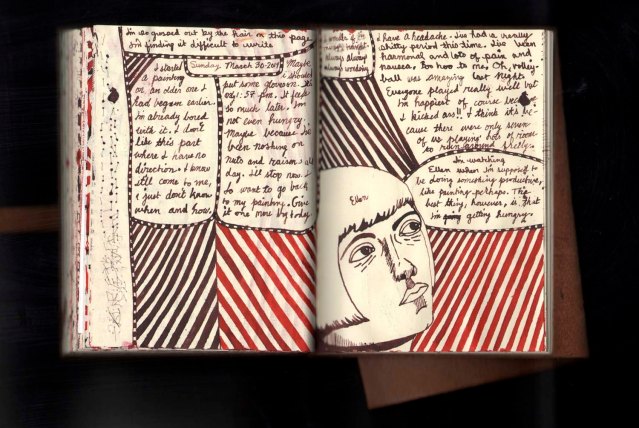 I'm grossed out by the hair in this page
I'm finding it difficult to write
Sunday. March 20
I started
a painting
on an older one I
had begun earlier.
I'm already bored
with it. I don't
like this part
where I have no
direction. I know
it'll come to me,
I just don't know
when and how.
Maybe
I should
put some gloves on. It
1:57 pm. It feels
so much later. I'm
not even hungry.
Maybe because I've
been noshing on
nuts and raisin all
day. I'll stop now. I
do want to go back
to my painting. Give
it one more by today
always
always
I have a headache. I've had a really
shitty period this time. I've been
hormonal and lots of pain and
nausea. Ew how to mos Oh, volley-
ball was amazing last night.
Everyone played really well but
I'm happiest of course because
I kicked ass!! I think it's be-
cause there were only seven
of us playing lots of room
to run around freely.
I'm watching
Ellen when I'm supposed to
be doing something productive,
like painting perhaps. The
best thing, however, is that
I'm getting hungry.
Ellen